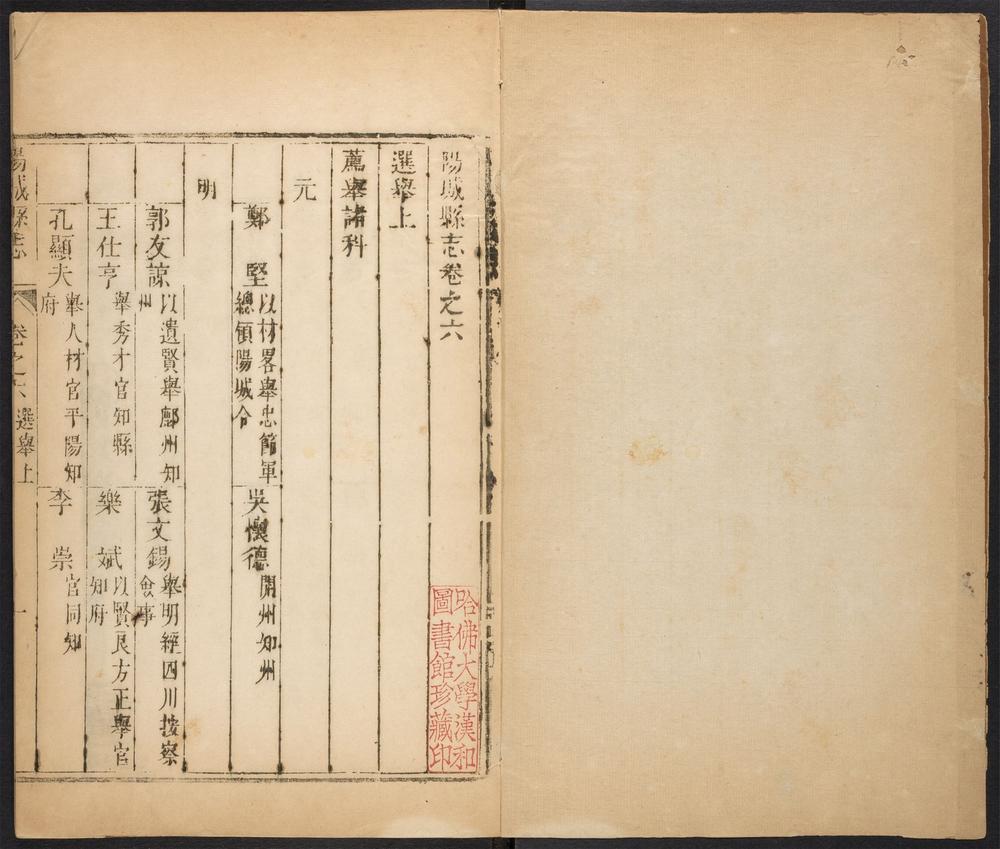 陽城縣志卷之六
選舉上
薦舉諸科
元
鄭堅 以材畧舉忠節軍
總領陽城令
吳懷德 開州知州
明
郭友諒 以遺賢舉鄜州知
州
張文錫 舉明經四川按察
僉事
王仕亨 舉秀才官知縣
樂斌 以賢良方正舉官
知府
孔顯夫 舉人材官平陽知
府
李崇 官同知
陽城縣志 卷之六 選舉上 一
哈佛大學漢和
圖書館珍藏印